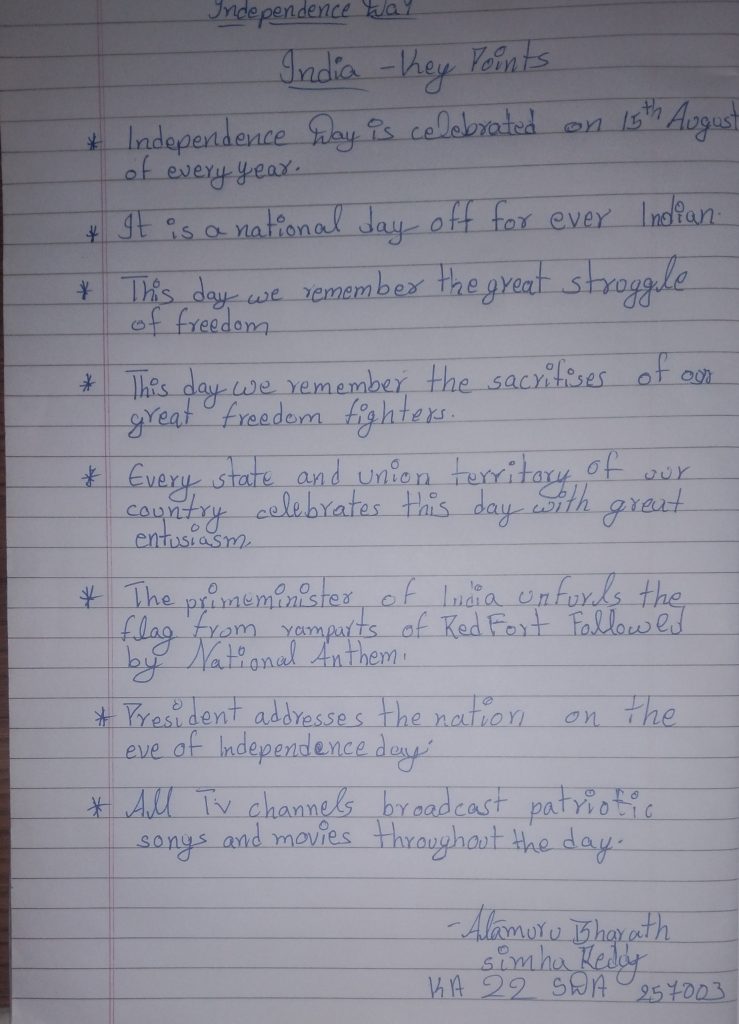 Independence Day
India - Key Points
* Independence Day is celebrated on 15th August
of every year.
* It is a national day off for ever Indian.
* This day we remember the great struggle
of freedom
* This day we remember the sacrifises of our
great freedom fighters.
* Every state and union territory of our
country celebrates this day with great
entusiasm.
* The primeminister of India unfurls the
flag from ramparts of Red Fort Followed
by National Anthem.
* President addresses the nation on the
eve of Independence day.
* All Tv channels broadcast patriotic
songs and movies throughout the day.
- Alamuru Bharath
simha Reddy
KA 22 SDA 257003